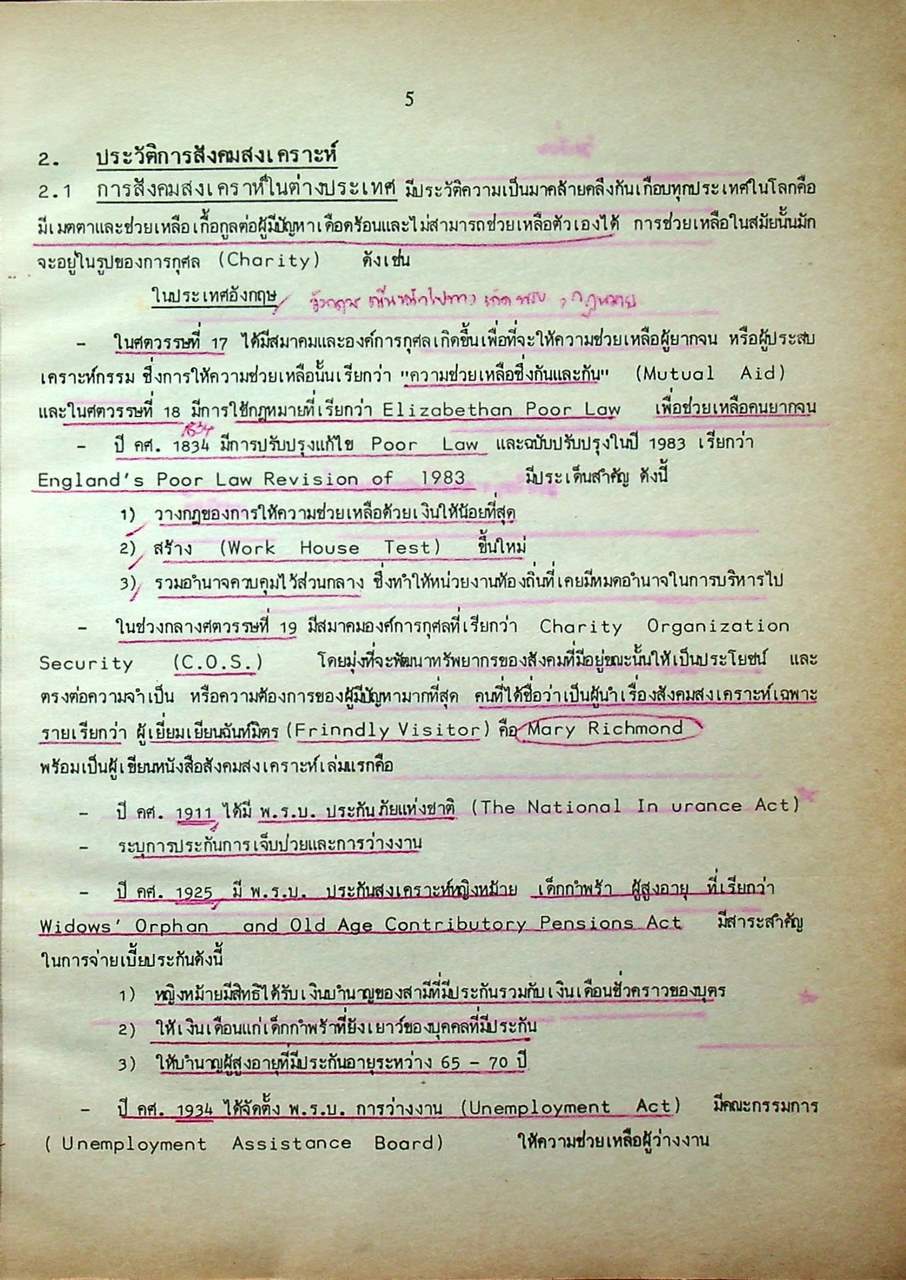 5
2. ประวัติการสังคมสงเคราะห์
2.1 การสังคมสงเคราห์ในต่างประเทศ มีประวัติความเป็นมาคล้ายคลึงกันเกือบทุกประเทศในโลกคือ
มีเมตตาและช่วยเหลือเกื้อกูลต่อผู้มีปัญหาเดือดร้อนและไม่สามารถช่วยเหลือตัวเองได้ การช่วยเหลือในสมัยนั้นมัก
จะอยู่ในรูปของการกุศล (Charity) ดังเช่น
ในประเทศอังกฤษ
- ในศตวรรษที่ 17 ได้มีสมาคมและองค์การกุศลเกิดขึ้นเพื่อที่จะให้ความช่วยเหลือผู้ยากจน หรือผู้ประสบ
เคราะห์กรรม ซึ่งการให้ความช่วยเหลือนั้นเรียกว่า "ความช่วยเหลือซึ่งกันและกัน" (Mutual Aid)
และในศตวรรษที่ 18 มีการใช้กฎหมายที่เรียกว่า Elizabethan Poor Law เพื่อช่วยเหลือคนยากจน
1834
- ปี คศ. 1834 มีการปรับปรุงแก้ไข Poor Law และฉบับปรับปรุงในปี 1983 เรียกว่า
England's Poor Law Revision of 1983 มีประเด็นสำคัญ ดังนี้
1) วางกฎของการให้ความช่วยเหลือด้วยเงินให้น้อยที่สุด
2) สร้าง (Work House Test) ขึ้นใหม่
3) รวมอำนาจควบคุมไว้ส่วนกลาง ซึ่งทำให้หน่วยงานท้องถิ่นที่เคยมีหมดอำนาจในการบริหารไป
- ในช่วงกลางศตวรรษที่ 19 มีสมาคมองค์การกุศลที่เรียกว่า Charity Organization
Security (C.O.S.) โดยมุ่งที่จะพัฒนาทรัพยากรของสังคมที่มีอยู่ขณะนั้นให้เป็นประโยชน์ และ
ตรงต่อความจำเป็น หรือความต้องการของผู้มีปัญหามากที่สุด คนที่ได้ชื่อว่าเป็นผู้นำเรื่องสังคมสงเคราะห์เฉพาะ
รายเรียกว่า ผู้เยี่ยมเยียนฉันท์มิตร (Frinndly Visitor) คือ Mary Richmond
พร้อมเป็นผู้เขียนหนังสือสังคมสงเคราะห์เล่มแรกคือ
- ปี คศ. 1911 ได้มี พ.ร.บ. ประกันภัยแห่งชาติ (The National In urance Act)
- ระบุการประกันการเจ็บป่วยและการว่างงาน
- ปี คศ. 1925 มี พ.ร.บ. ประกันสงเคราะห์หญิงหม้าย เด็กกำพร้า ผู้สูงอายุ ที่เรียกว่า
Widows' Orphan and Old Age Contributory Pensions Act มีสาระสำคัญ
ในการจ่ายเบี้ยประกันดังนี้
1) หญิงหม้ายมีสิทธิได้รับเงินบำนาญของสามีที่มีประกันรวมกับเงินเดือนชั่วคราวของบุตร
2) ให้เงินเดือนแก่เด็กกำพร้าที่ยังเยาว์ของบุคคลที่มีประกัน
3) ให้บำนาญผู้สูงอายุที่มีประกันอายุระหว่าง 65 - 70 ปี
- ปี คศ. 1934 ได้จัดตั้ง พ.ร.บ. การว่างงาน (Unemployment Act) มีคณะกรรมการ
(Unemployment Assistance Board) ให้ความช่วยเหลือผู้ว่างงาน